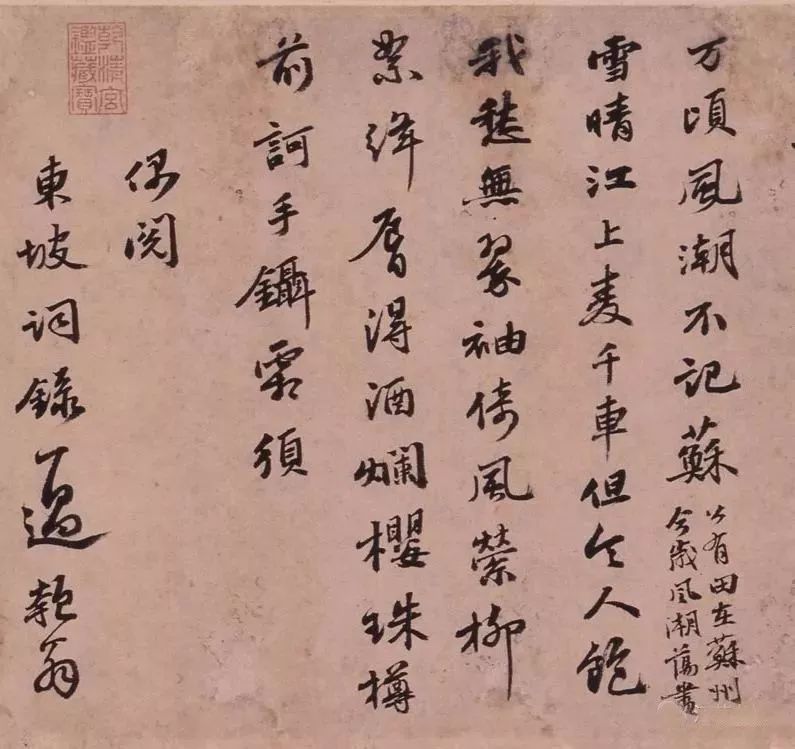 万頃風潮不記蘇
公有田在蘇州
今歲風潮蕩盡
雪晴江上麦千車但令人飽
我愁無翠袖倚風縈柳
絮絳脣得酒爛櫻珠樽
前訶手鑷霜須
乾清宮
鑑藏寶
偶閱
東坡詞錄一過匏翁